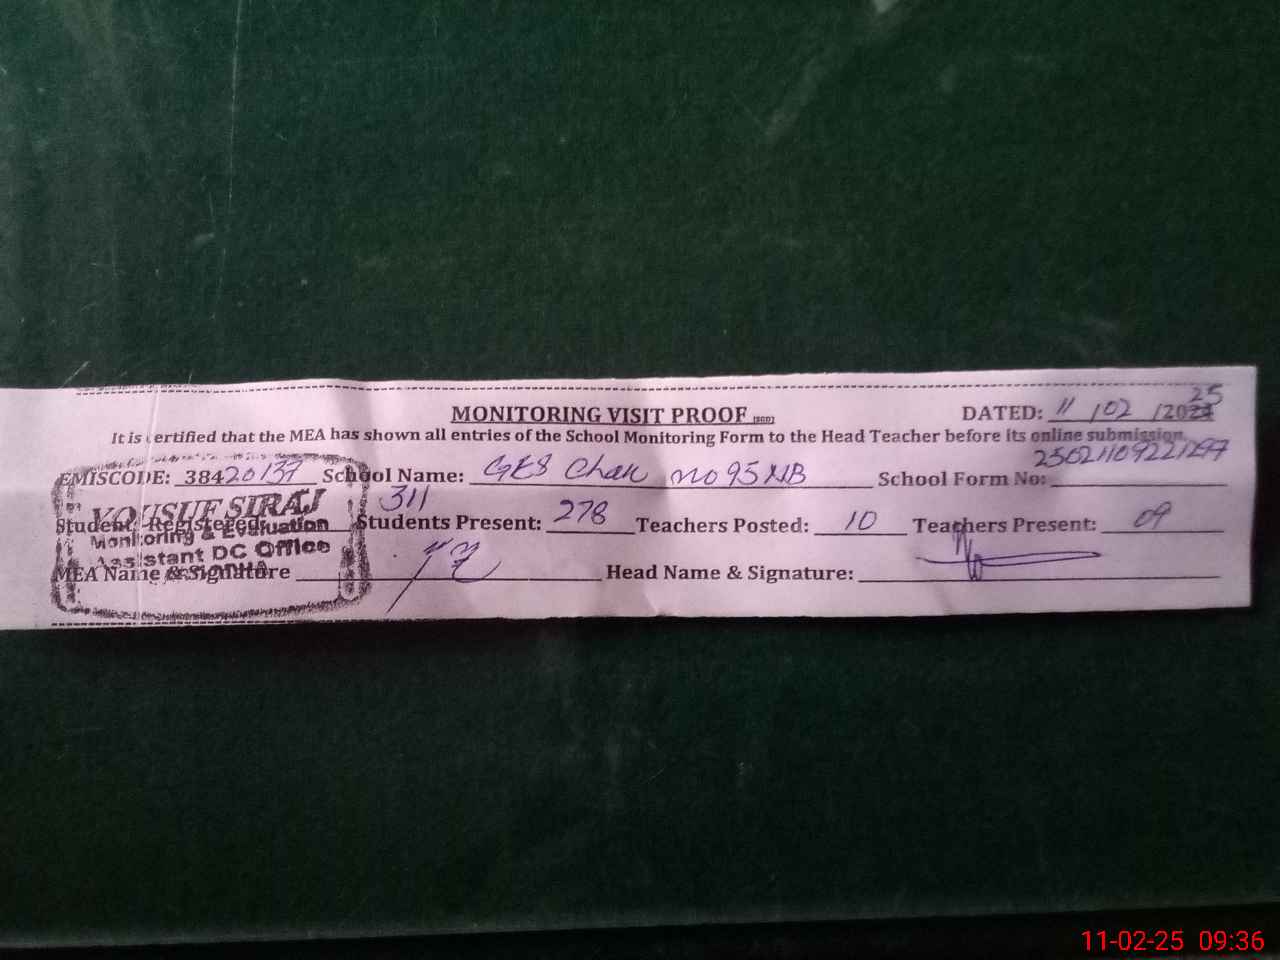 MONITORING VISIT PROOF (SGD) DATED: 11 /02 /2024 25
It is certified that the MEA has shown all entries of the School Monitoring Form to the Head Teacher before its online submission.
EMISCODE: 38420137 School Name: GES Chak no 95 NB School Form No:
YOUSUF SIRAJ
Student Registered: 311 Students Present: 278 Teachers Posted: 10 Teachers Present: 09
Monitoring & Evaluation
Assistant DC Office
MEA Name & Signature Head Name & Signature:
11-02-25 09:36